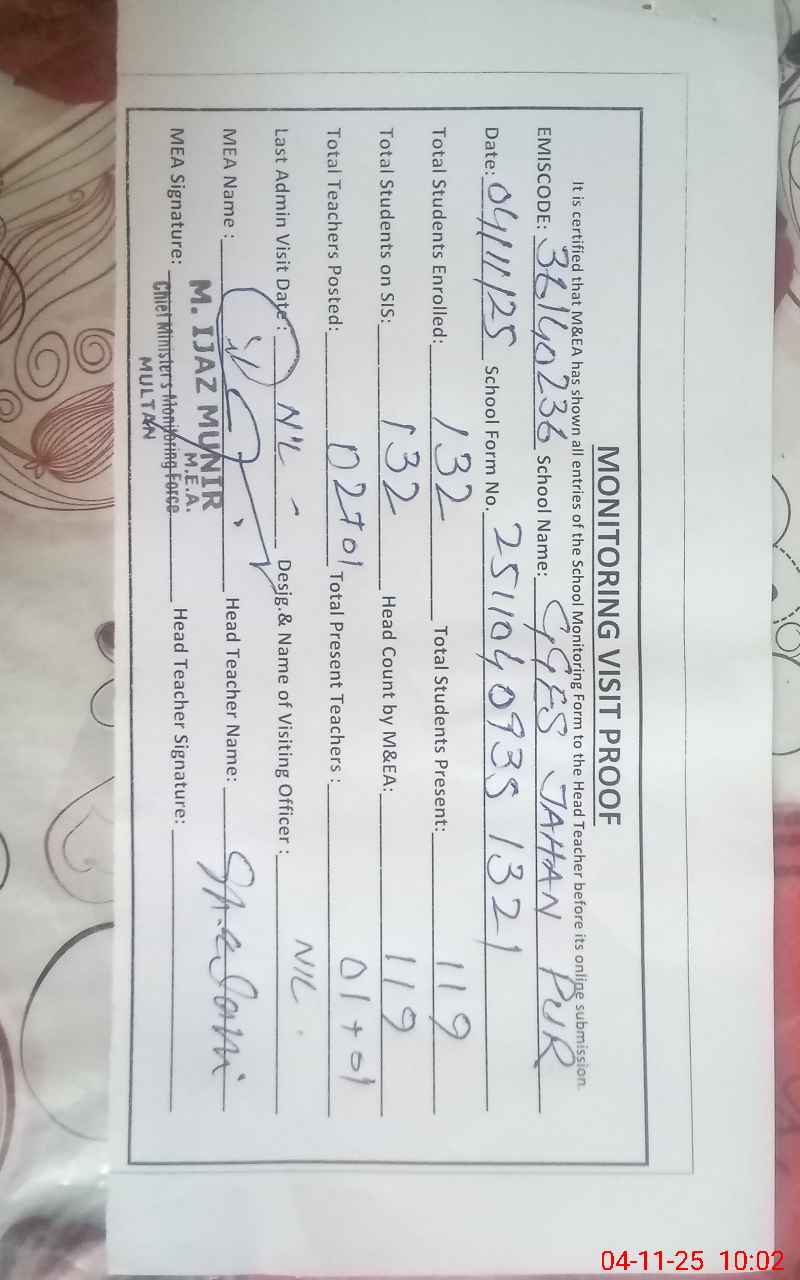 MONITORING VISIT PROOF
It is certified that M&EA has shown all entries of the School Monitoring Form to the Head Teacher before its online submission.
EMISCODE: 36140236 School Name: GGES JAHAN PUR
Date: 04/11/25 School Form No. 251104093S 1321
Total Students Enrolled: 132 Total Students Present: 119
Total Students on SIS: 132 Head Count by M&EA: 119
Total Teachers Posted: 02+01 Total Present Teachers : 01+01
Last Admin Visit Date : NIL Desig.& Name of Visiting Officer : NIL
MEA Name : Head Teacher Name:
M. IJAZ MUNIR
M.E.A.
MEA Signature: Head Teacher Signature:
Chief Minister's Monitoring Force
MULTAN
04-11-25 10:02